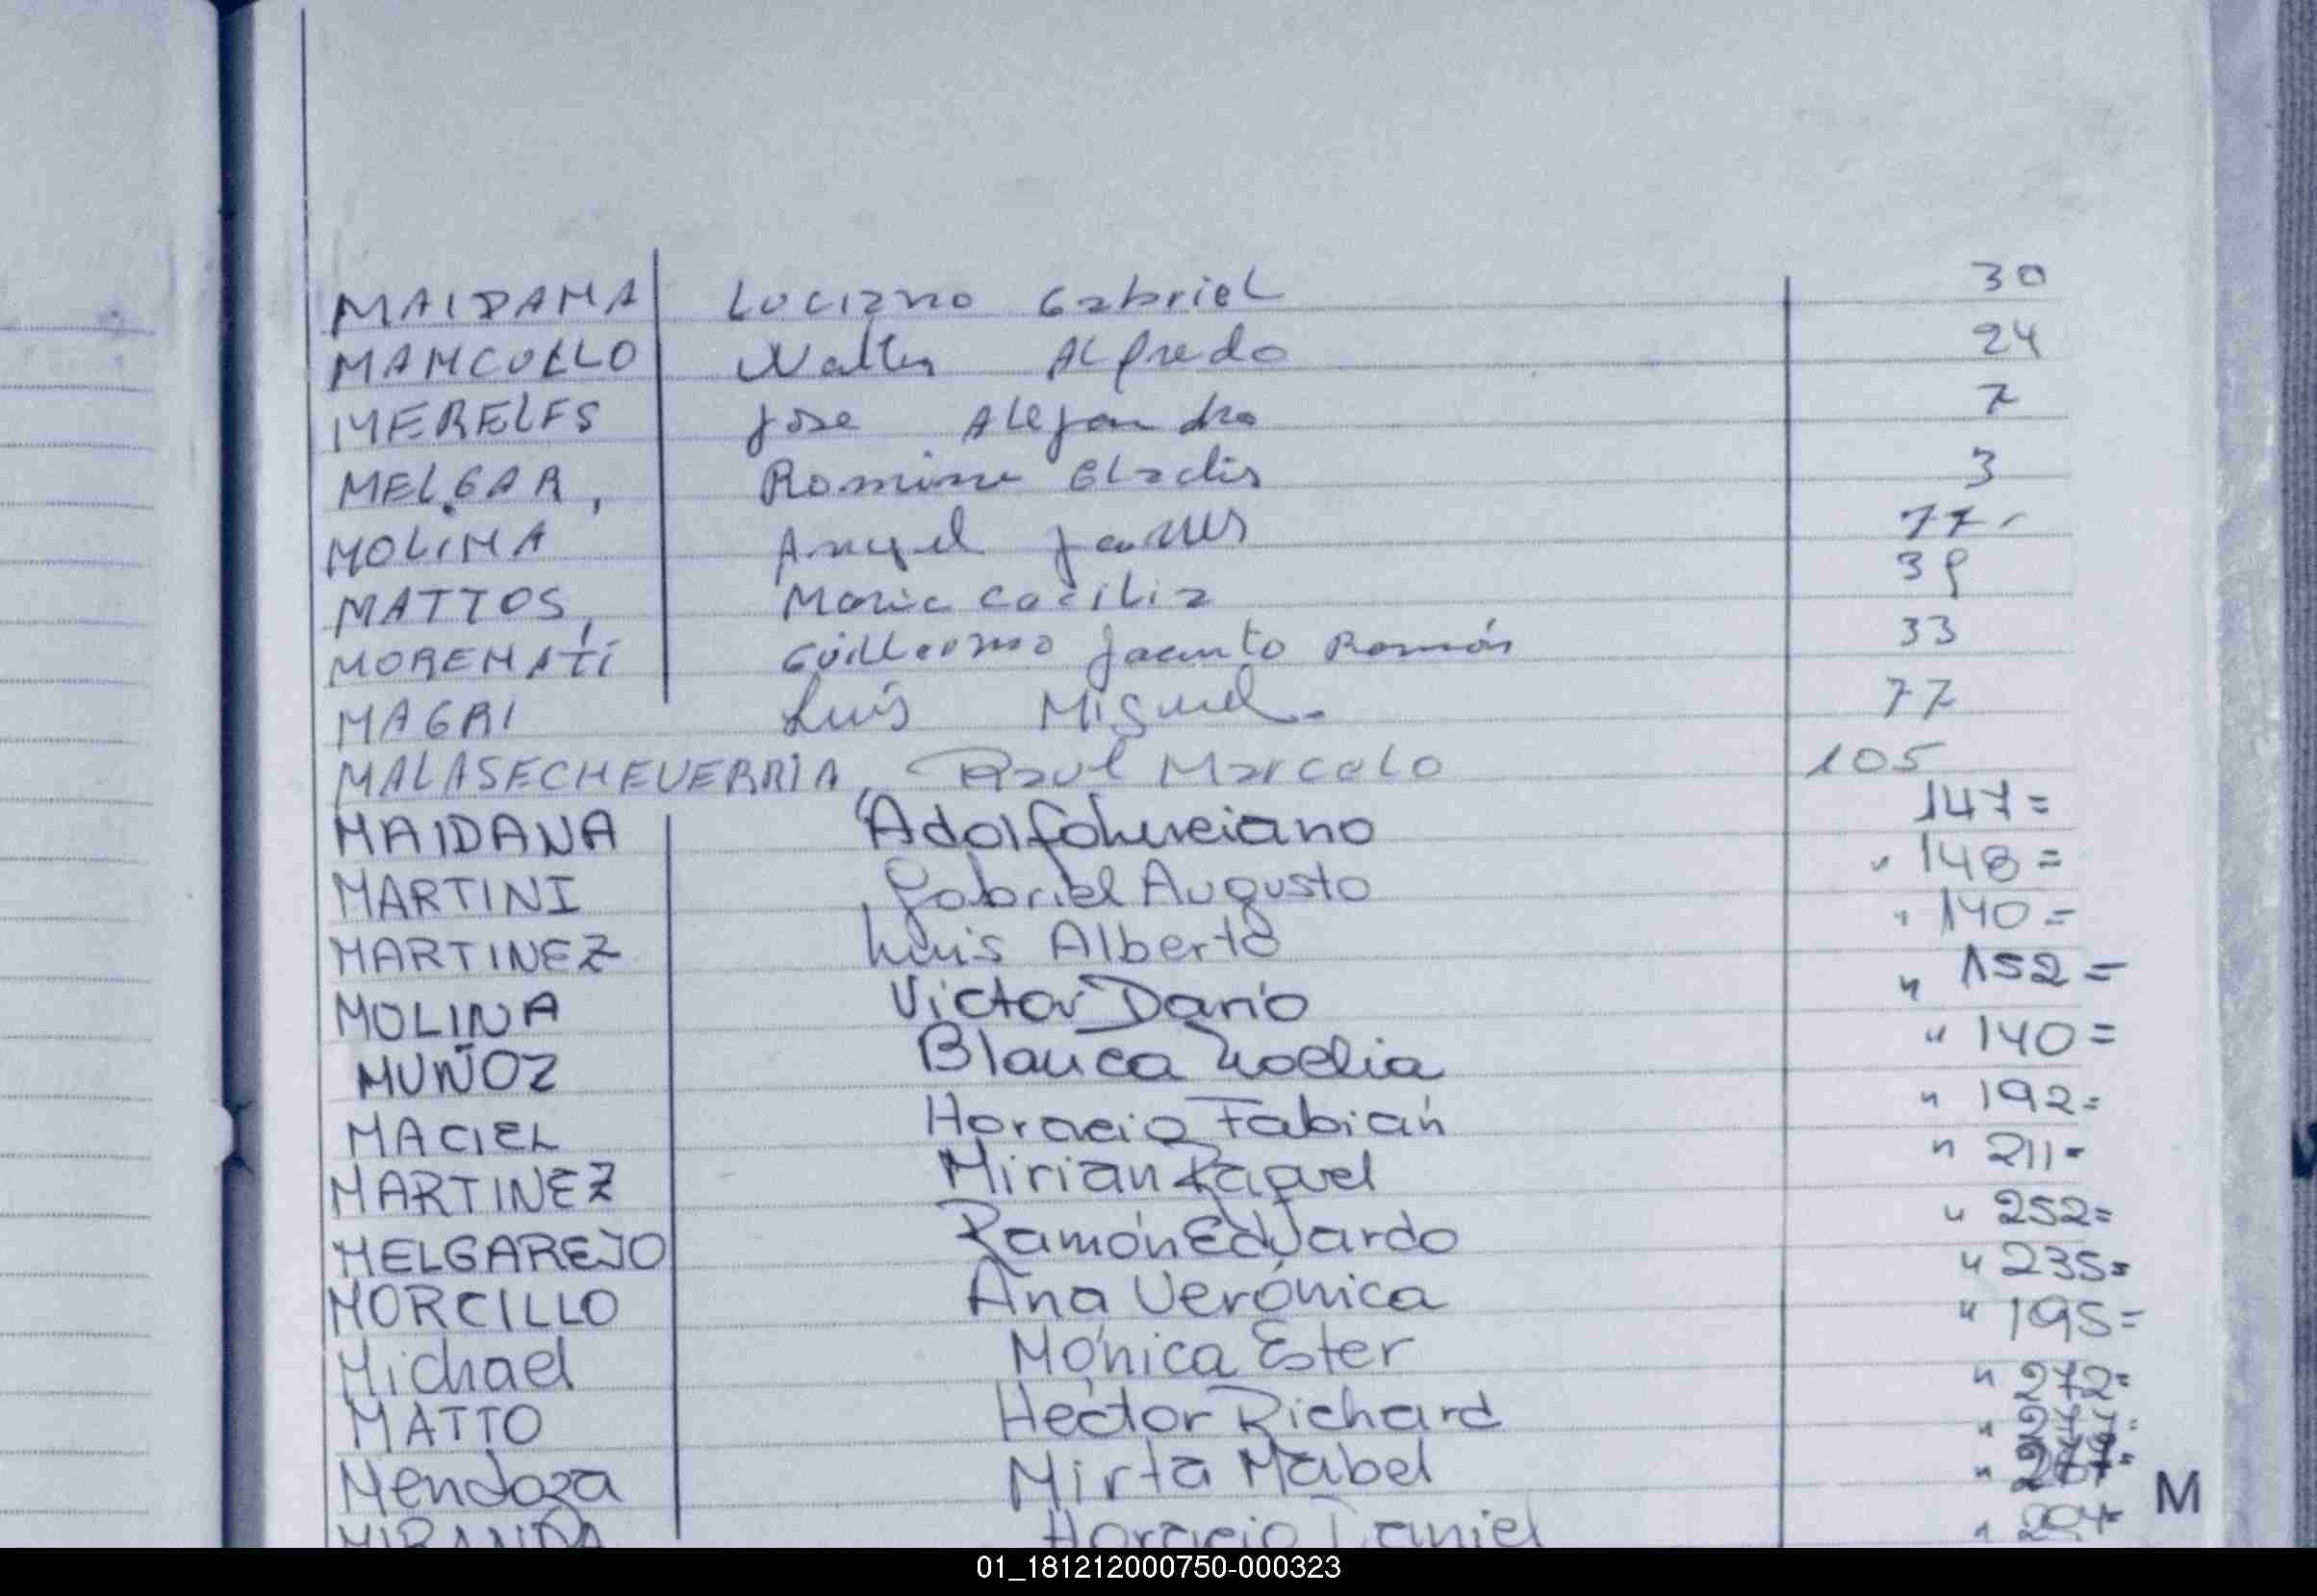 MAIDANA Luciano Gabriel 30
MANCULLO Walter Alfredo 24
MERELES Jose Alejandro 7
MELGAR, Romina Gladis 3
MOLINA Angel 77
MATTOS, Maria Cecilia 39
Guillermo Jacinto Román 33
MAGRI Luis Miguel. 77
MALASECHEVERRIA, Raul Marcelo 105
MAIDANA Adolfo Luciano 147=
MARTINI Gabriel Augusto " 148=
MARTINEZ Luis Alberto " 140=
MOLINA Victor Darío " 152=
MUÑOZ Blanca Noelia " 140=
MACIEL Horacio Fabián " 192=
MARTINEZ Mirian Raquel " 211=
MELGAREJO Ramón Eduardo " 252=
MORCILLO Ana Verónica " 235=
Michael Mónica Ester " 195=
MATTO Hector Richard " 272=
Mendoza Mirta Mabel "
MIRANDA Horacio Daniel "
M
01_181212000750-000323